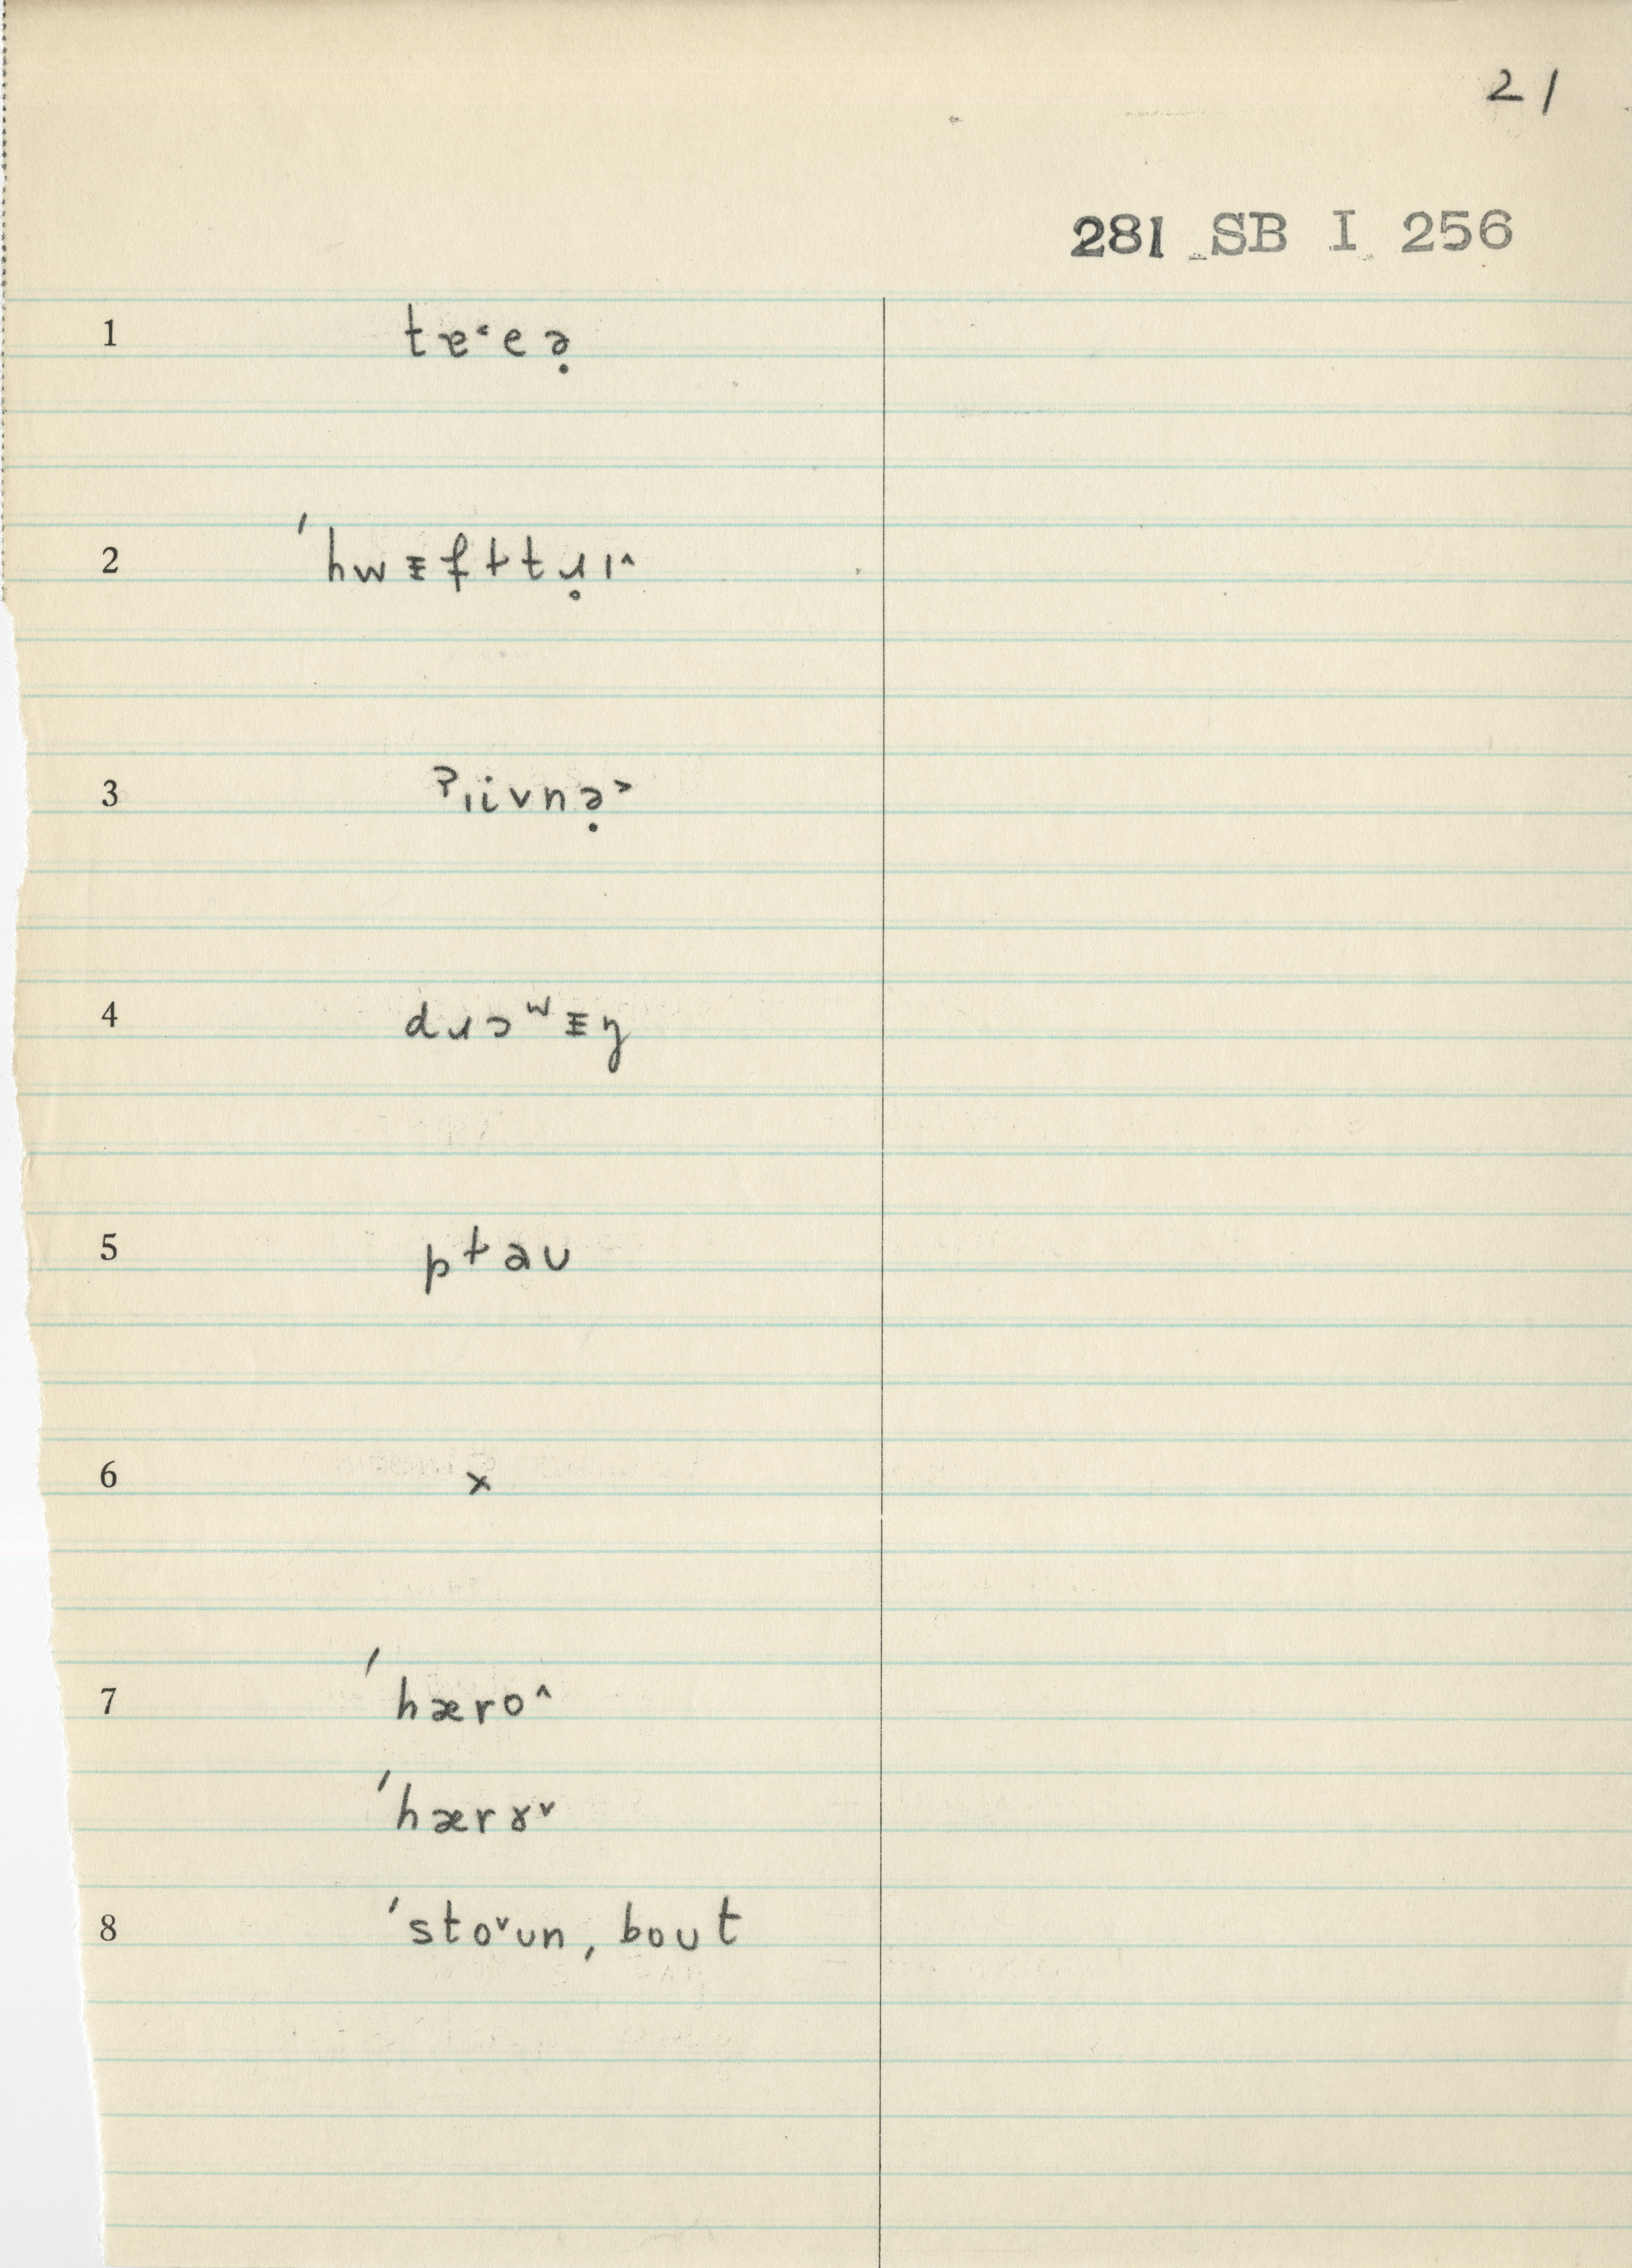 21
281 SB I 256
1 tɐ˂eə̣
2 ˈhwᵻfttɹ̥ɪ˄
3 ˀɪivnə̣˃
4 dɹɔʷᵻŋ
5 ptau
6 x
7 ˈhæro˄
ˈhærɤ˅
8 ˈsto˅un, bout